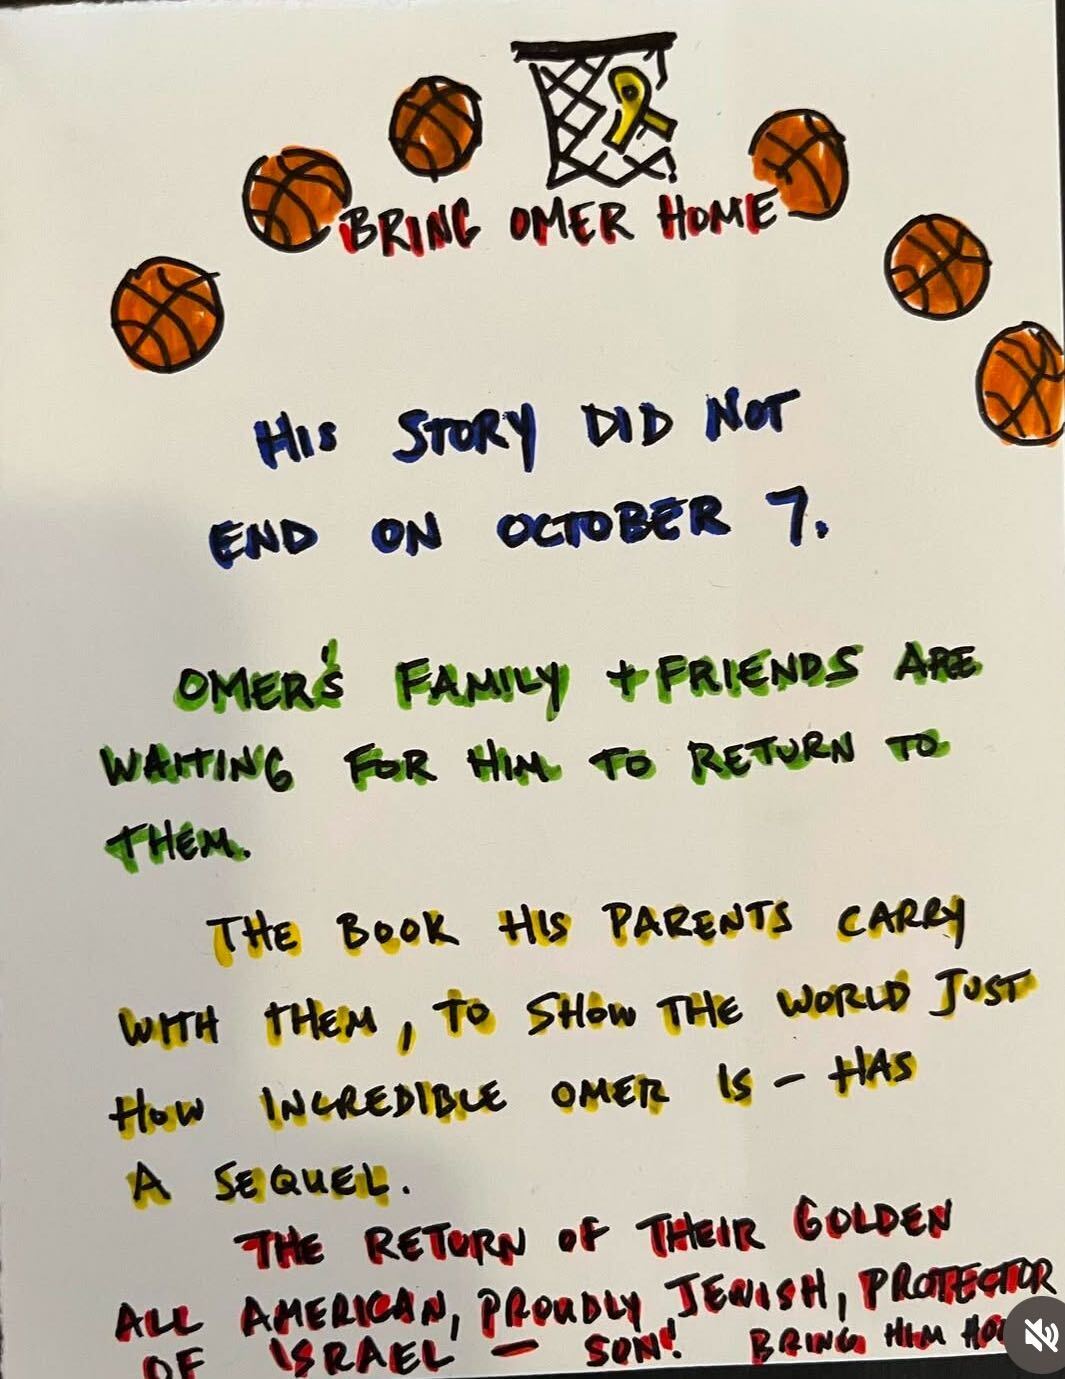 BRING OMER HOME
HIS STORY DID NOT
END ON OCTOBER 7.
OMER'S FAMILY + FRIENDS ARE
WAITING FOR HIM TO RETURN TO
THEM.
THE BOOK HIS PARENTS CARRY
WITH THEM, TO SHOW THE WORLD JUST
HOW INCREDIBLE OMER IS - HAS
A SEQUEL.
THE RETURN OF THEIR GOLDEN
ALL AMERICAN, PROUDLY JEWISH, PROTECTOR
OF ISRAEL - SON! BRING HIM